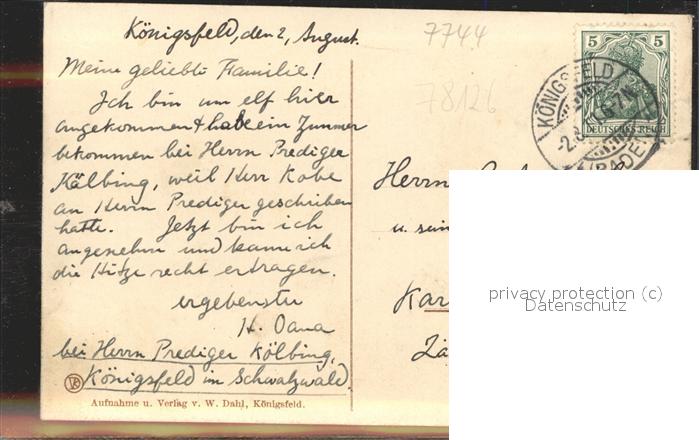 Königsfeld, den 2, August.
7744
78126
Meine geliebte Familie!
Ich bin um elf hier
angekommen & habe ein Zimmer
bekommen bei Herrn Prediger
Kälbing, weil Herr Kobe
an Herrn Prediger geschrieben
hatte. Jetzt bin ich
angenehm und kann ich
die Hitze recht ertragen.
ergebenster
H. Oana
bei Herrn Prediger Kölbing,
Königsfeld im Schwalzwald.
Aufnahme u. Verlag v. W. Dahl, Königsfeld.
5 5
DEUTSCHES REICH
KÖNIGSFELD
(BADEN)
Herrn
u. sein
Kar
privacy protection (c)
Datenschutz